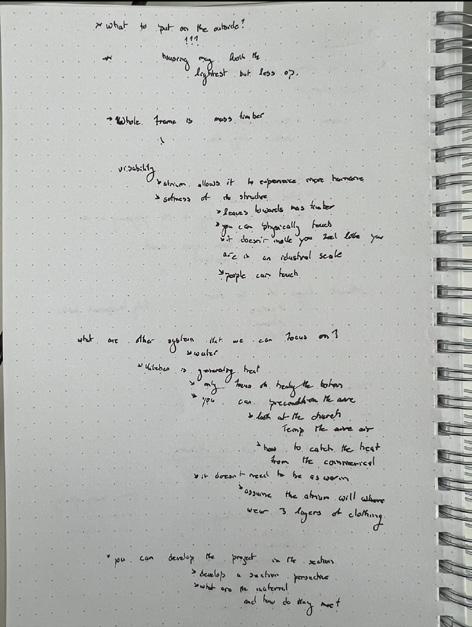 * what to put on the outside?
!!!
* housing may look the
lightest but less op.
→ Whole frame is mass timber
visability
> atrium allows it to experience more humane
> softness of the structure
> leaves towards mass timber
> you can physically touch
> it doesn't make you feel like you
are in an idustrial scale
> people can touch
what are other system that we can focus on?
> water
> kitchen is generating heat
> only focus on heating the bottom
> you can precondition the
> look at the church
Temp the air
> how to catch the heat
from the commercial
> it doesn't need to be as warm
> assume the atrium will where
wear 3 layers of clothing
* you can develop the project in the section
> develop a section perspective
> what are the material
and how do they meet